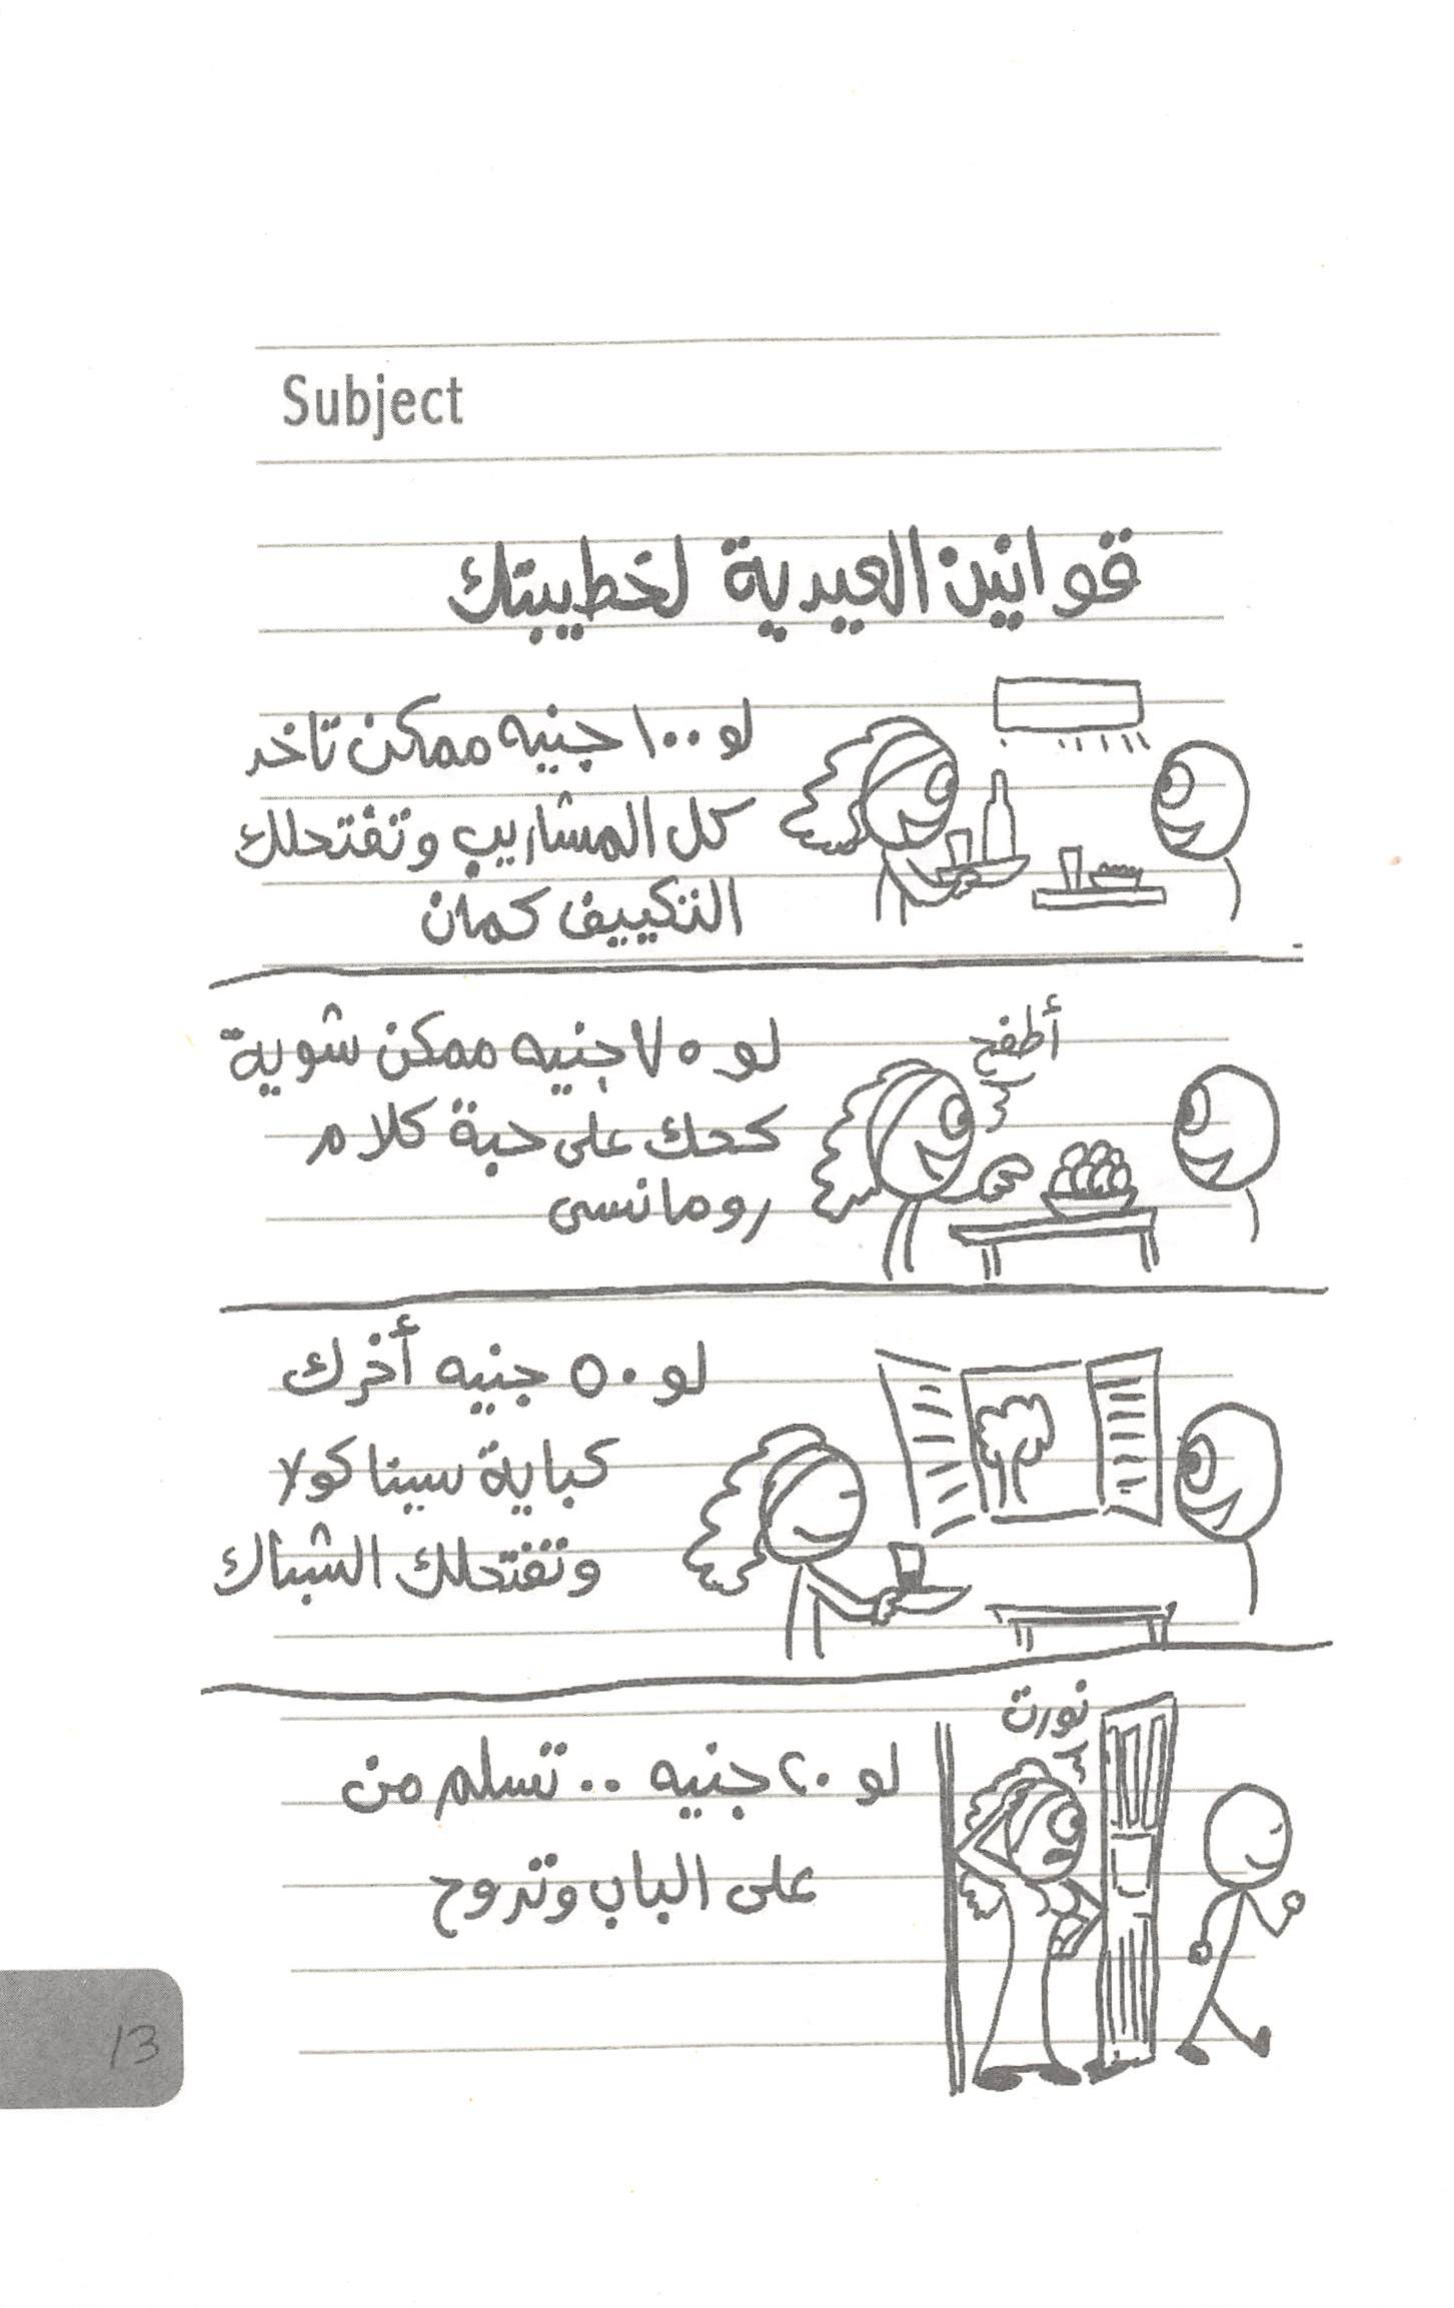 Subject
قوانين العيدية لخطيبتك
لو ١٠٠ جنيه ممكن تاخد
كل المشاريب وتفتحلك
التكييف كمان
لو ٧٥ جنيه ممكن شوية
كحك على حبة كلام
رومانسى
أطفح
لو ٥٠ جنيه أخرك
كباية سينا كولا
وتفتحلك الشباك
لو ٢٠ جنيه .. تسلم من
على الباب وتروح
نورت
13